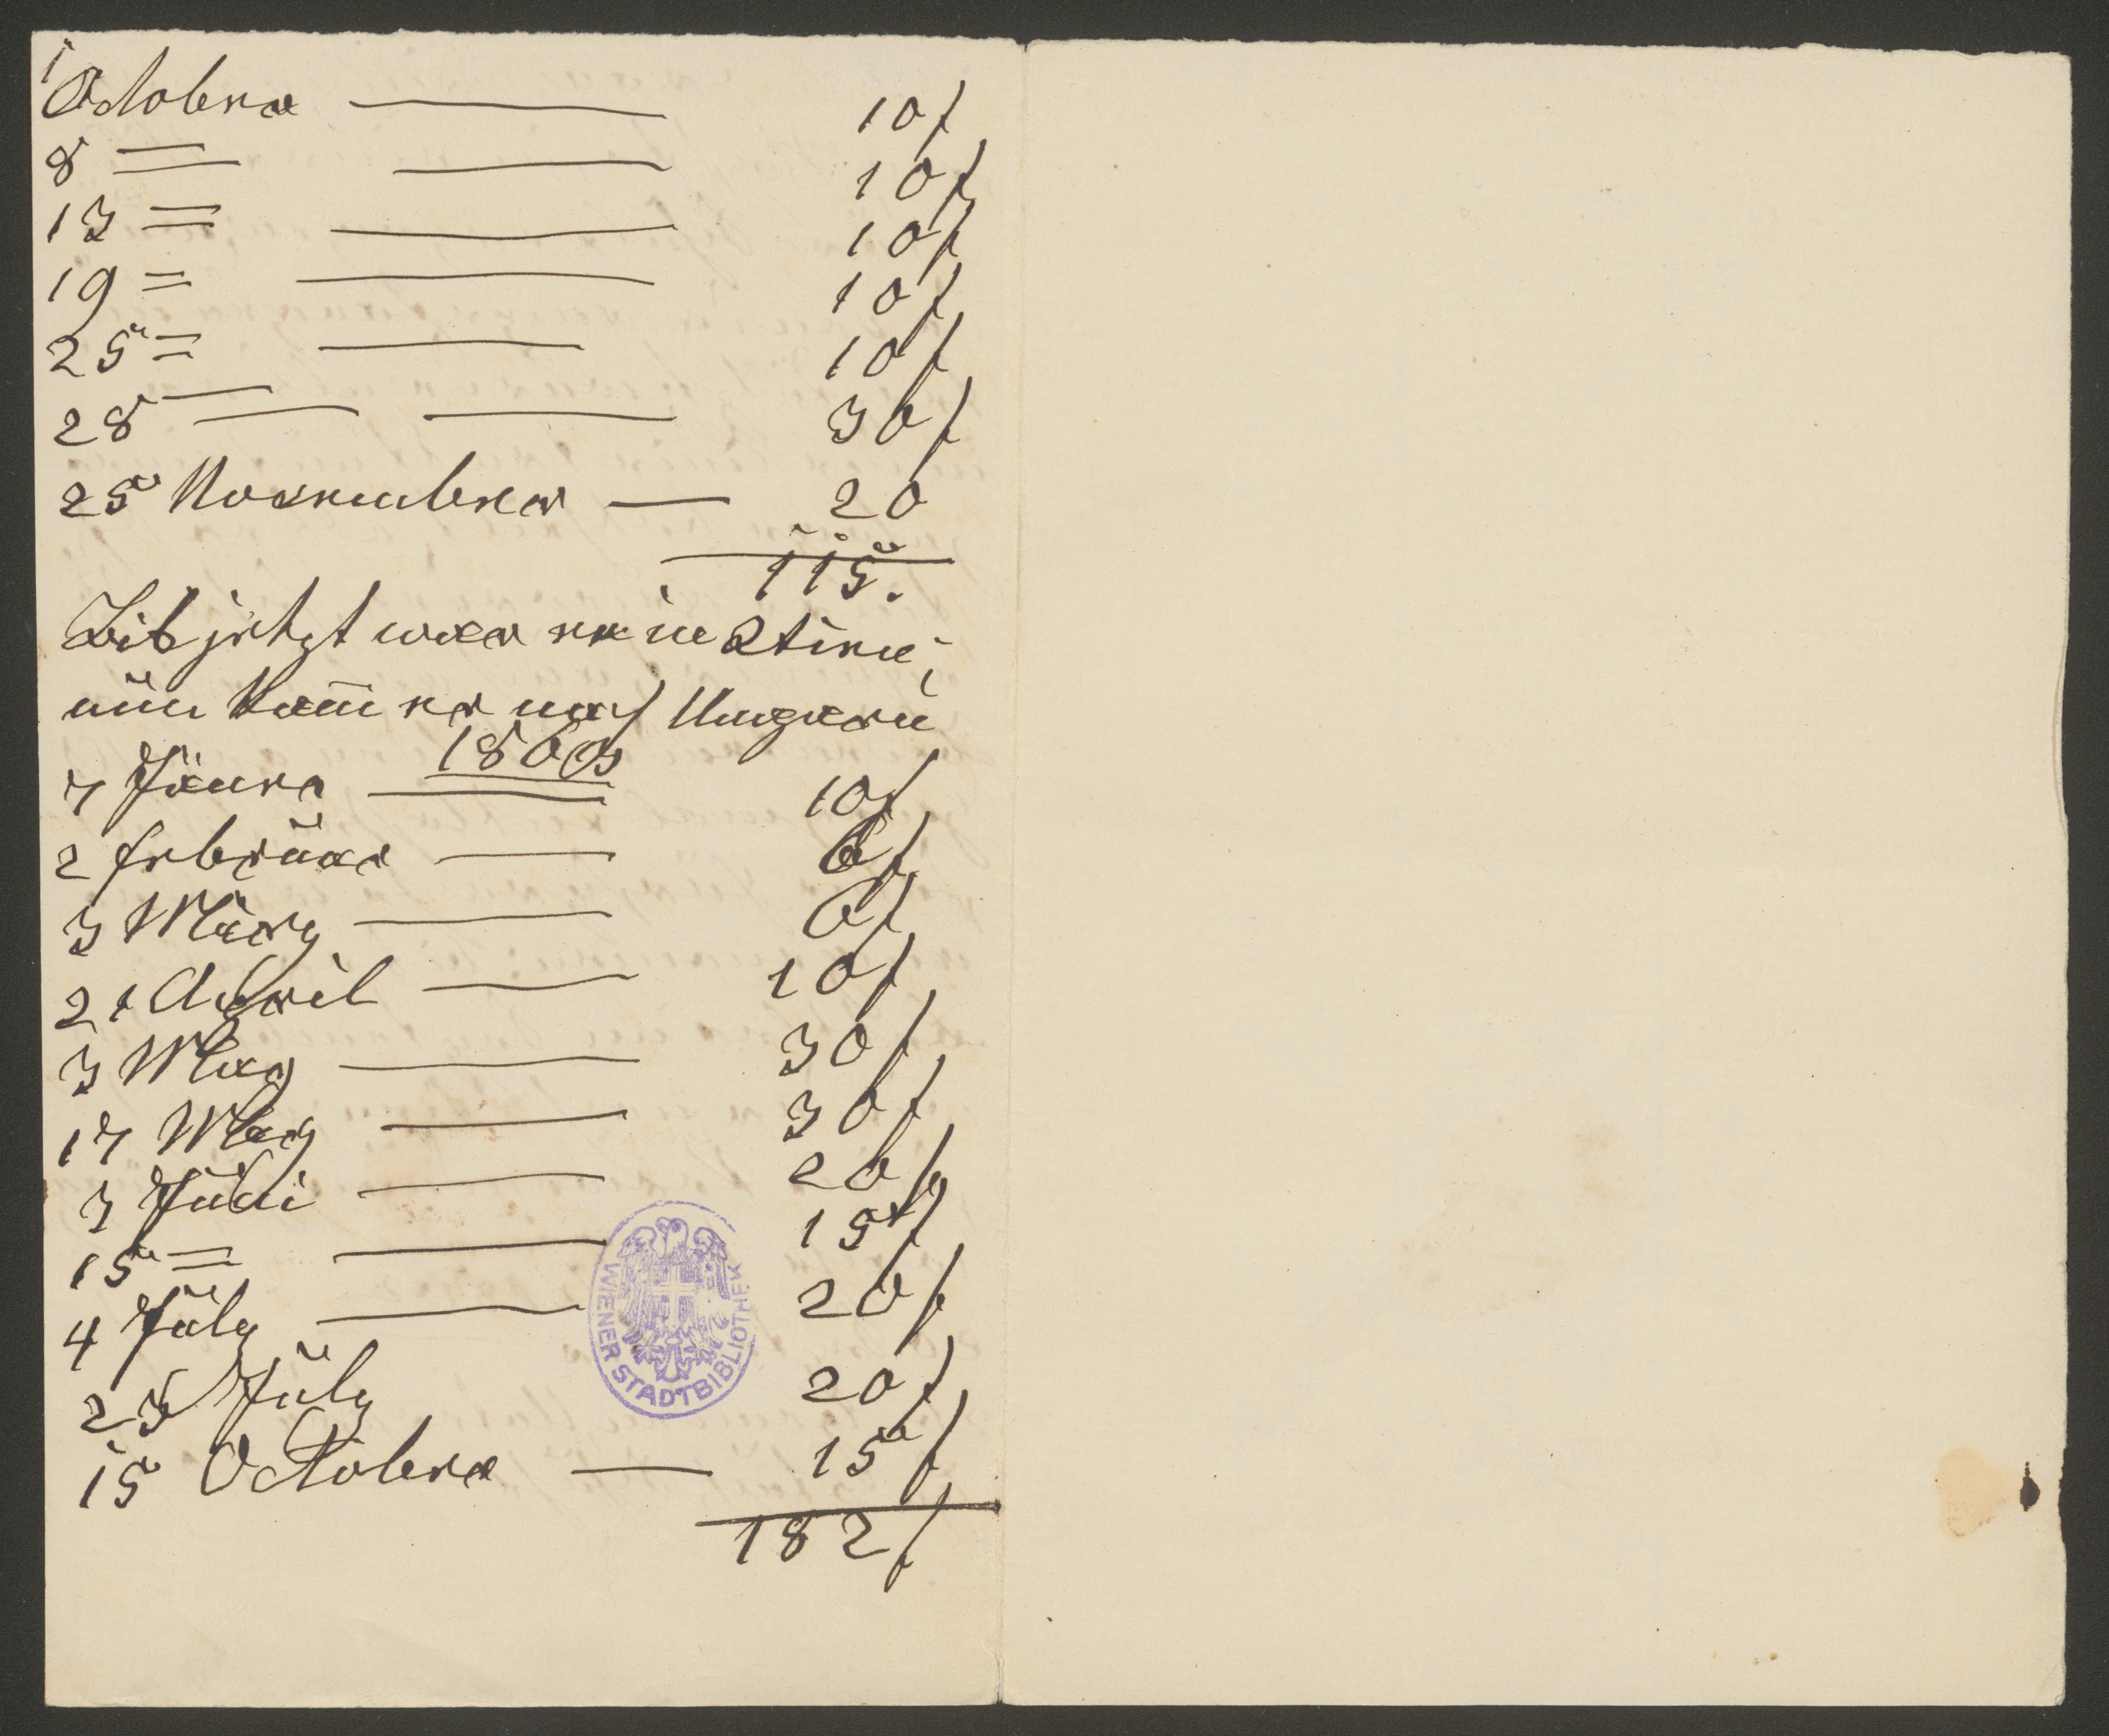 1
October — 10 f
8 = — 10 f
13 = — 10 f
19 = — 10 f
25 = — 10 f
28 = — 30 f
25 November — 20
115.
Bis jetzt war er in
nun kam er nach Ungarn
1869
7 Jäner — 10 f
2 Februar — 6 f
3 März — 6 f
21 April — 10 f
3 May — 30 f
17 May — 30 f
3 Juni — 20 f
15 = — 15 f
4 July — 20 f
23 July 20 f
15 October — 15 f
182 f
WIENER STADTBIBLIOTHEK